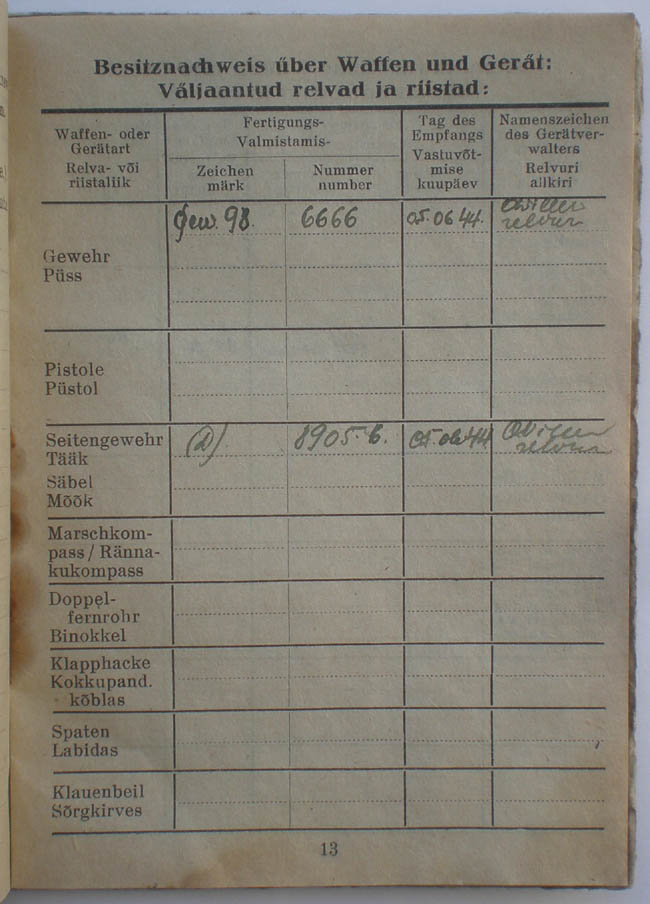 Besitznachweis über Waffen und Gerät:
Väljaantud relvad ja riistad:
Waffen- oder
Gerätart
Relva- või
riistaliik
Fertigungs-
Valmistamis-
Zeichen
märk
Nummer
number
Tag des
Empfangs
Vastuvõt-
mise
kuupäev
Namenszeichen
des Gerätver-
walters
Relvuri
allkiri
Gewehr
Püss
Gew. 98.
6666
05.06 44.
relvur
Pistole
Püstol
Seitengewehr
Tääk
Säbel
Mõõk
8905-b.
05.06 44
relvur
Marschkom-
pass / Ränna-
kukompass
Doppel-
fernrohr
Binokkel
Klapphacke
Kokkupand.
kõblas
Spaten
Labidas
Klauenbeil
Sõrgkirves
13